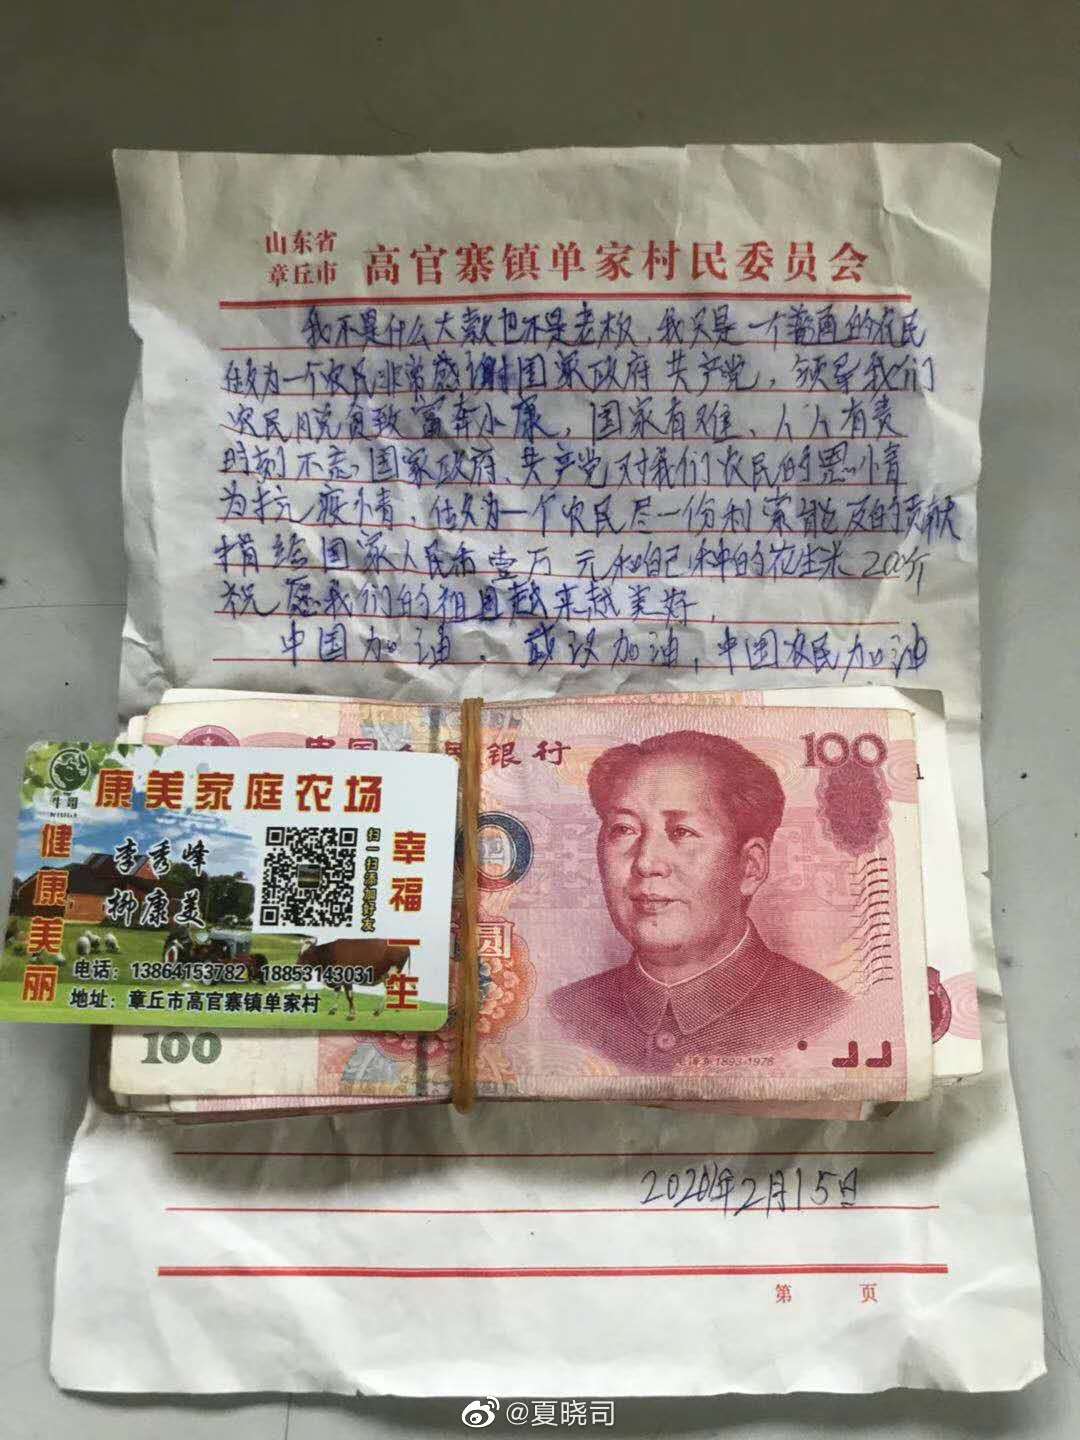 山东省
章丘市
高官寨镇单家村民委员会
我不是什么大款也不是老板，我只是一个普通的农民
做为一个农民非常感谢国家政府共产党，领导我们
农民脱贫致富奔小康，国家有难、人人有责
时刻不忘国家政府、共产党对我们农民的恩情
为抗疫情，做为一个农民尽一份利索能及的贡献
捐给国家人民币壹万元和自己种的花生米200斤
祝愿我们的祖国越来越美好，
中国加油、武汉加油，中国农民加油
中国人民银行
100
圆
毛泽东 1893-1976
100
牛哥
NIUGE
康美家庭农场
健康美丽
幸福一生
李秀峰
柳康美
扫一扫添加好友
电话：13864153782 18853143031
地址：章丘市高官寨镇单家村
2020年2月15日
第 页
@夏晓司